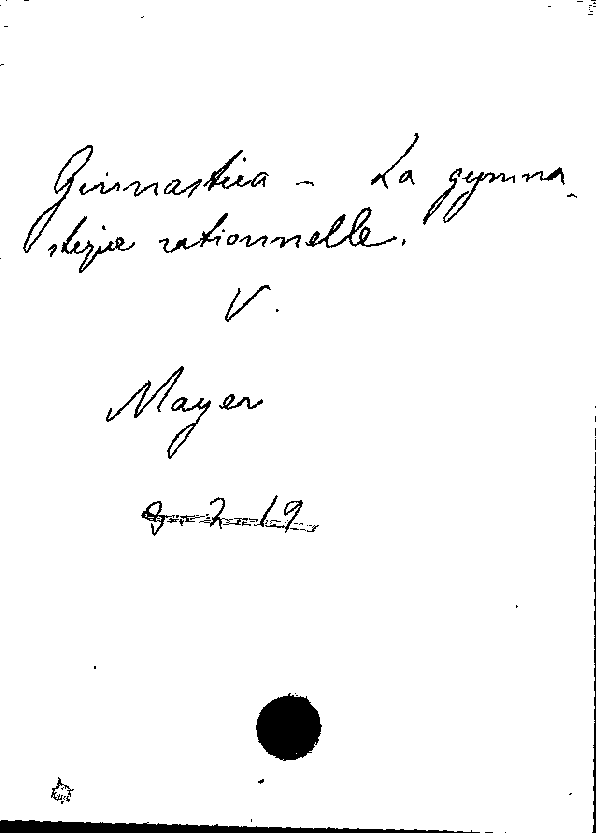 Ginnastica - La gymna-
stique rationnelle.
V.
Mayer
9. 2. 19